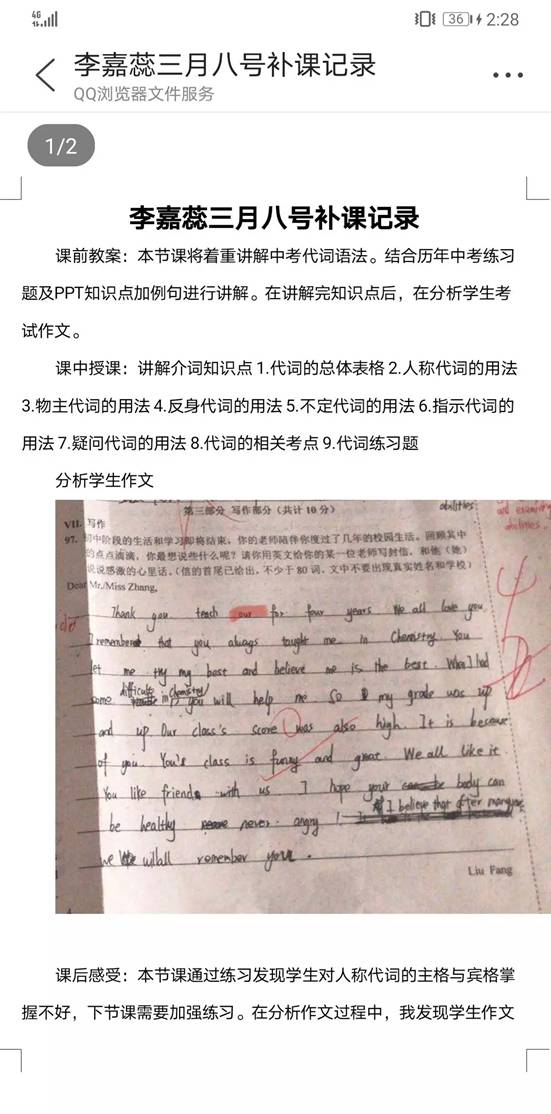 4G
36
2:28
李嘉蕊三月八号补课记录
QQ浏览器文件服务
1/2
李嘉蕊三月八号补课记录
课前教案：本节课将着重讲解中考代词语法。结合历年中考练习
题及PPT知识点加例句进行讲解。在讲解完知识点后，在分析学生考
试作文。
课中授课：讲解介词知识点 1.代词的总体表格 2.人称代词的用法
3.物主代词的用法 4.反身代词的用法 5.不定代词的用法 6.指示代词的
用法 7.疑问代词的用法 8.代词的相关考点 9.代词练习题
分析学生作文
第三部分 写作部分（共计 10 分）
abilities
VII. 写作
97. 初中阶段的生活和学习即将结束，你的老师陪伴你度过了几年的校园生活。回顾其中
的点点滴滴，你最想说些什么呢？请你用英文给你的某一位老师写封信，和他（她）
说说感激的心里话。（信的首尾已给出，不少于 80 词，文中不要出现真实姓名和学校）
Dear Mr./Miss Zhang,
Thank you teach our for four years. We all love you.
I remember that you aluays taught me in Chemistry. You
let me try my best and believe me is the best. When I had
some difficulte in Chemistry you will help me So my grade was up
and up. Our class's score was also high. It is because
of you. You's class is funny and great. We all like it.
You like friends with us I hope your body can
be healthy never angry! I believe that after many
we will all remember you.
Liu Fang
课后感受：本节课通过练习发现学生对人称代词的主格与宾格掌
握不好，下节课需要加强练习。在分析作文过程中，我发现学生作文